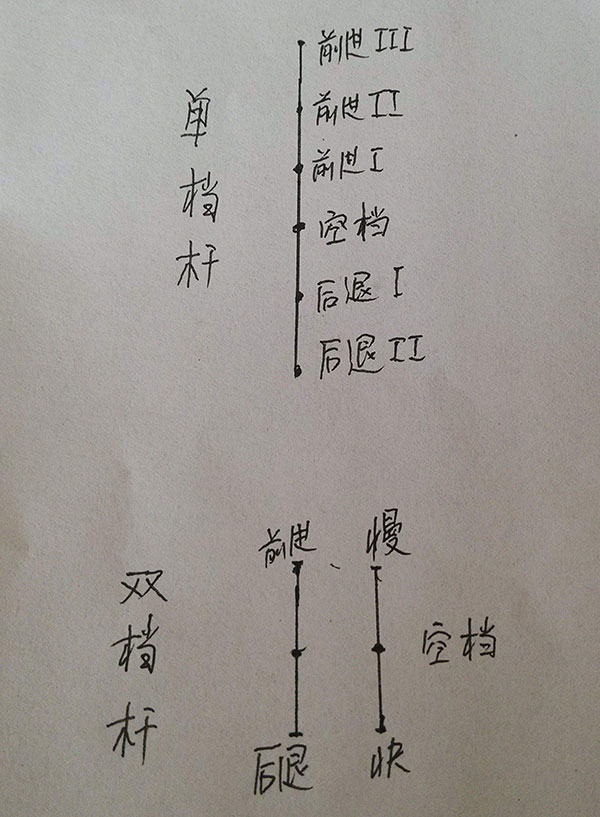 单档杆
前进III
前进II
前进I
空档
后退I
后退II
双档杆
前进
慢
空档
后退
快